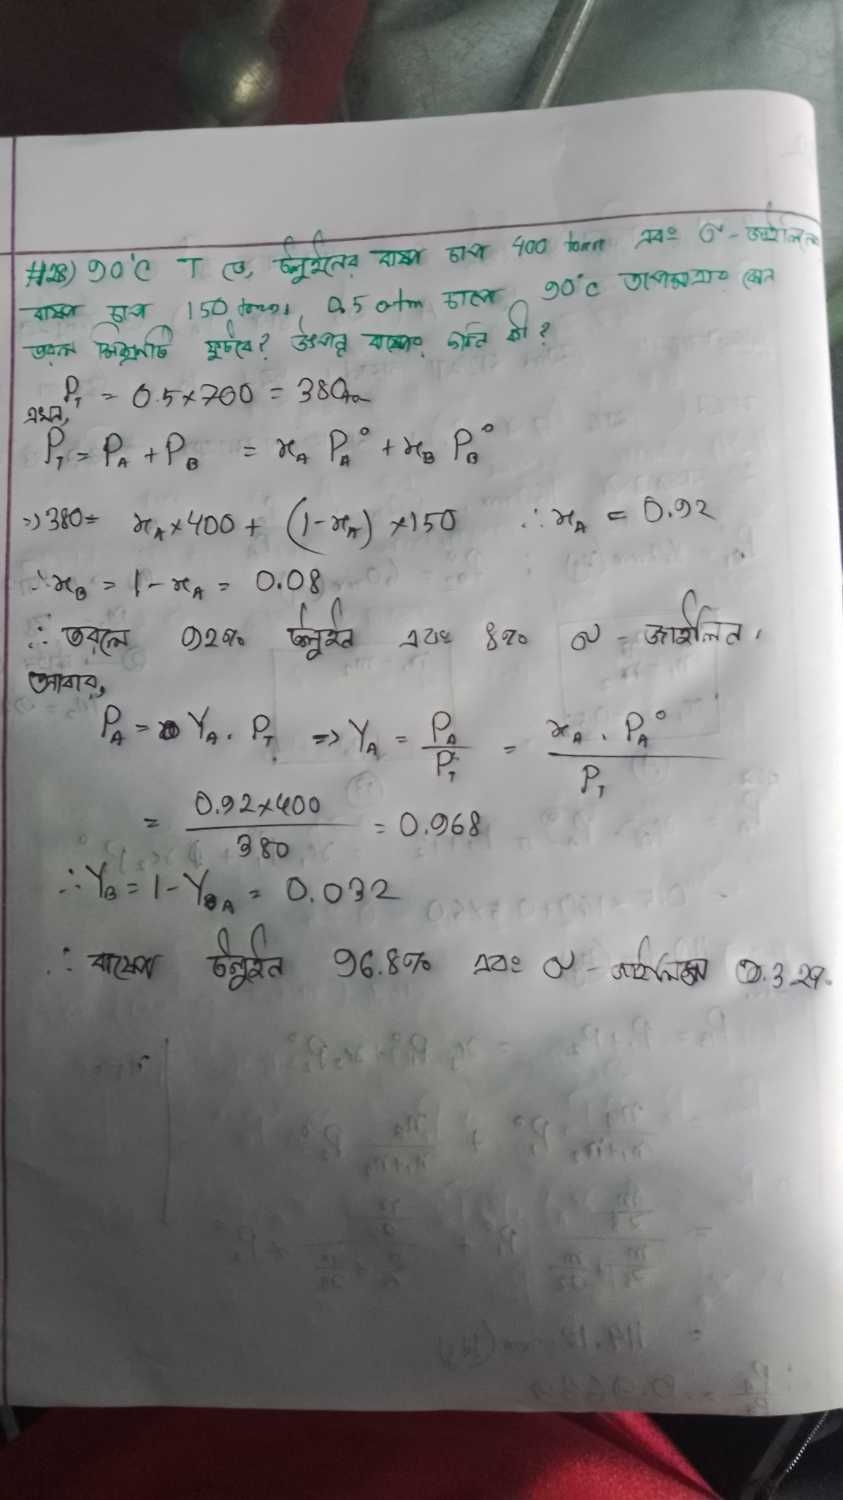 #28) 90°C T তে, টলুইনের বাষ্প চাপ 400 torr এবং o-জাইলিনের
বাষ্প চাপ 150 torr। 0.5 atm চাপে 90°C তাপমাত্রায় কোন
তরল মিশ্রণটি ফুটবে? উৎপন্ন বাষ্পের কী?
P_T = 0.5×760 = 380
এখন,
P_T = P_A + P_B = x_A P_A° + x_B P_B°
⇒ 380 = x_A×400 + (1-x_A)×150 ∴ x_A = 0.92
∴ x_B = 1-x_A = 0.08
∴ তরলে 92% টলুইন এবং 8% o-জাইলিন।
আবার,
P_A = Y_A . P_T ⇒ Y_A = P_A/P_T = x_A . P_A°/P_T
= 0.92×400/380 = 0.968
∴ Y_B = 1-Y_A = 0.032
∴ বাষ্পে টলুইন 96.8% এবং o-জাইলিন 3.2%